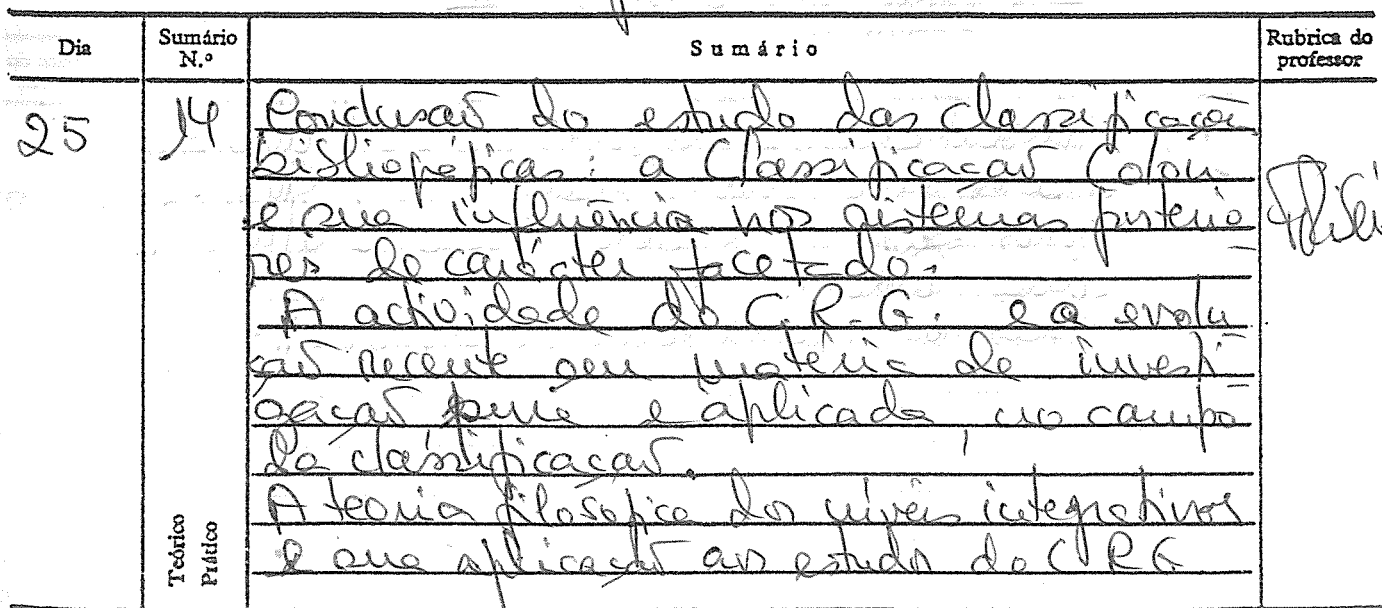 Dia
Sumário N.º
Sumário
Rubrica do professor
25
14
Conclusão do estudo das classificações
bibliográficas: a Classificação Colon
e sua influência nos sistemas posterio
res de carácter facetado.
A actividade do C.R.G. e a evolu
ção recente em matéria de investi
gação pura e aplicada no campo
da classificação.
A teoria filosófica dos níveis integrativos
e sua aplicação ao estudo do CRG
Teórico
Prático